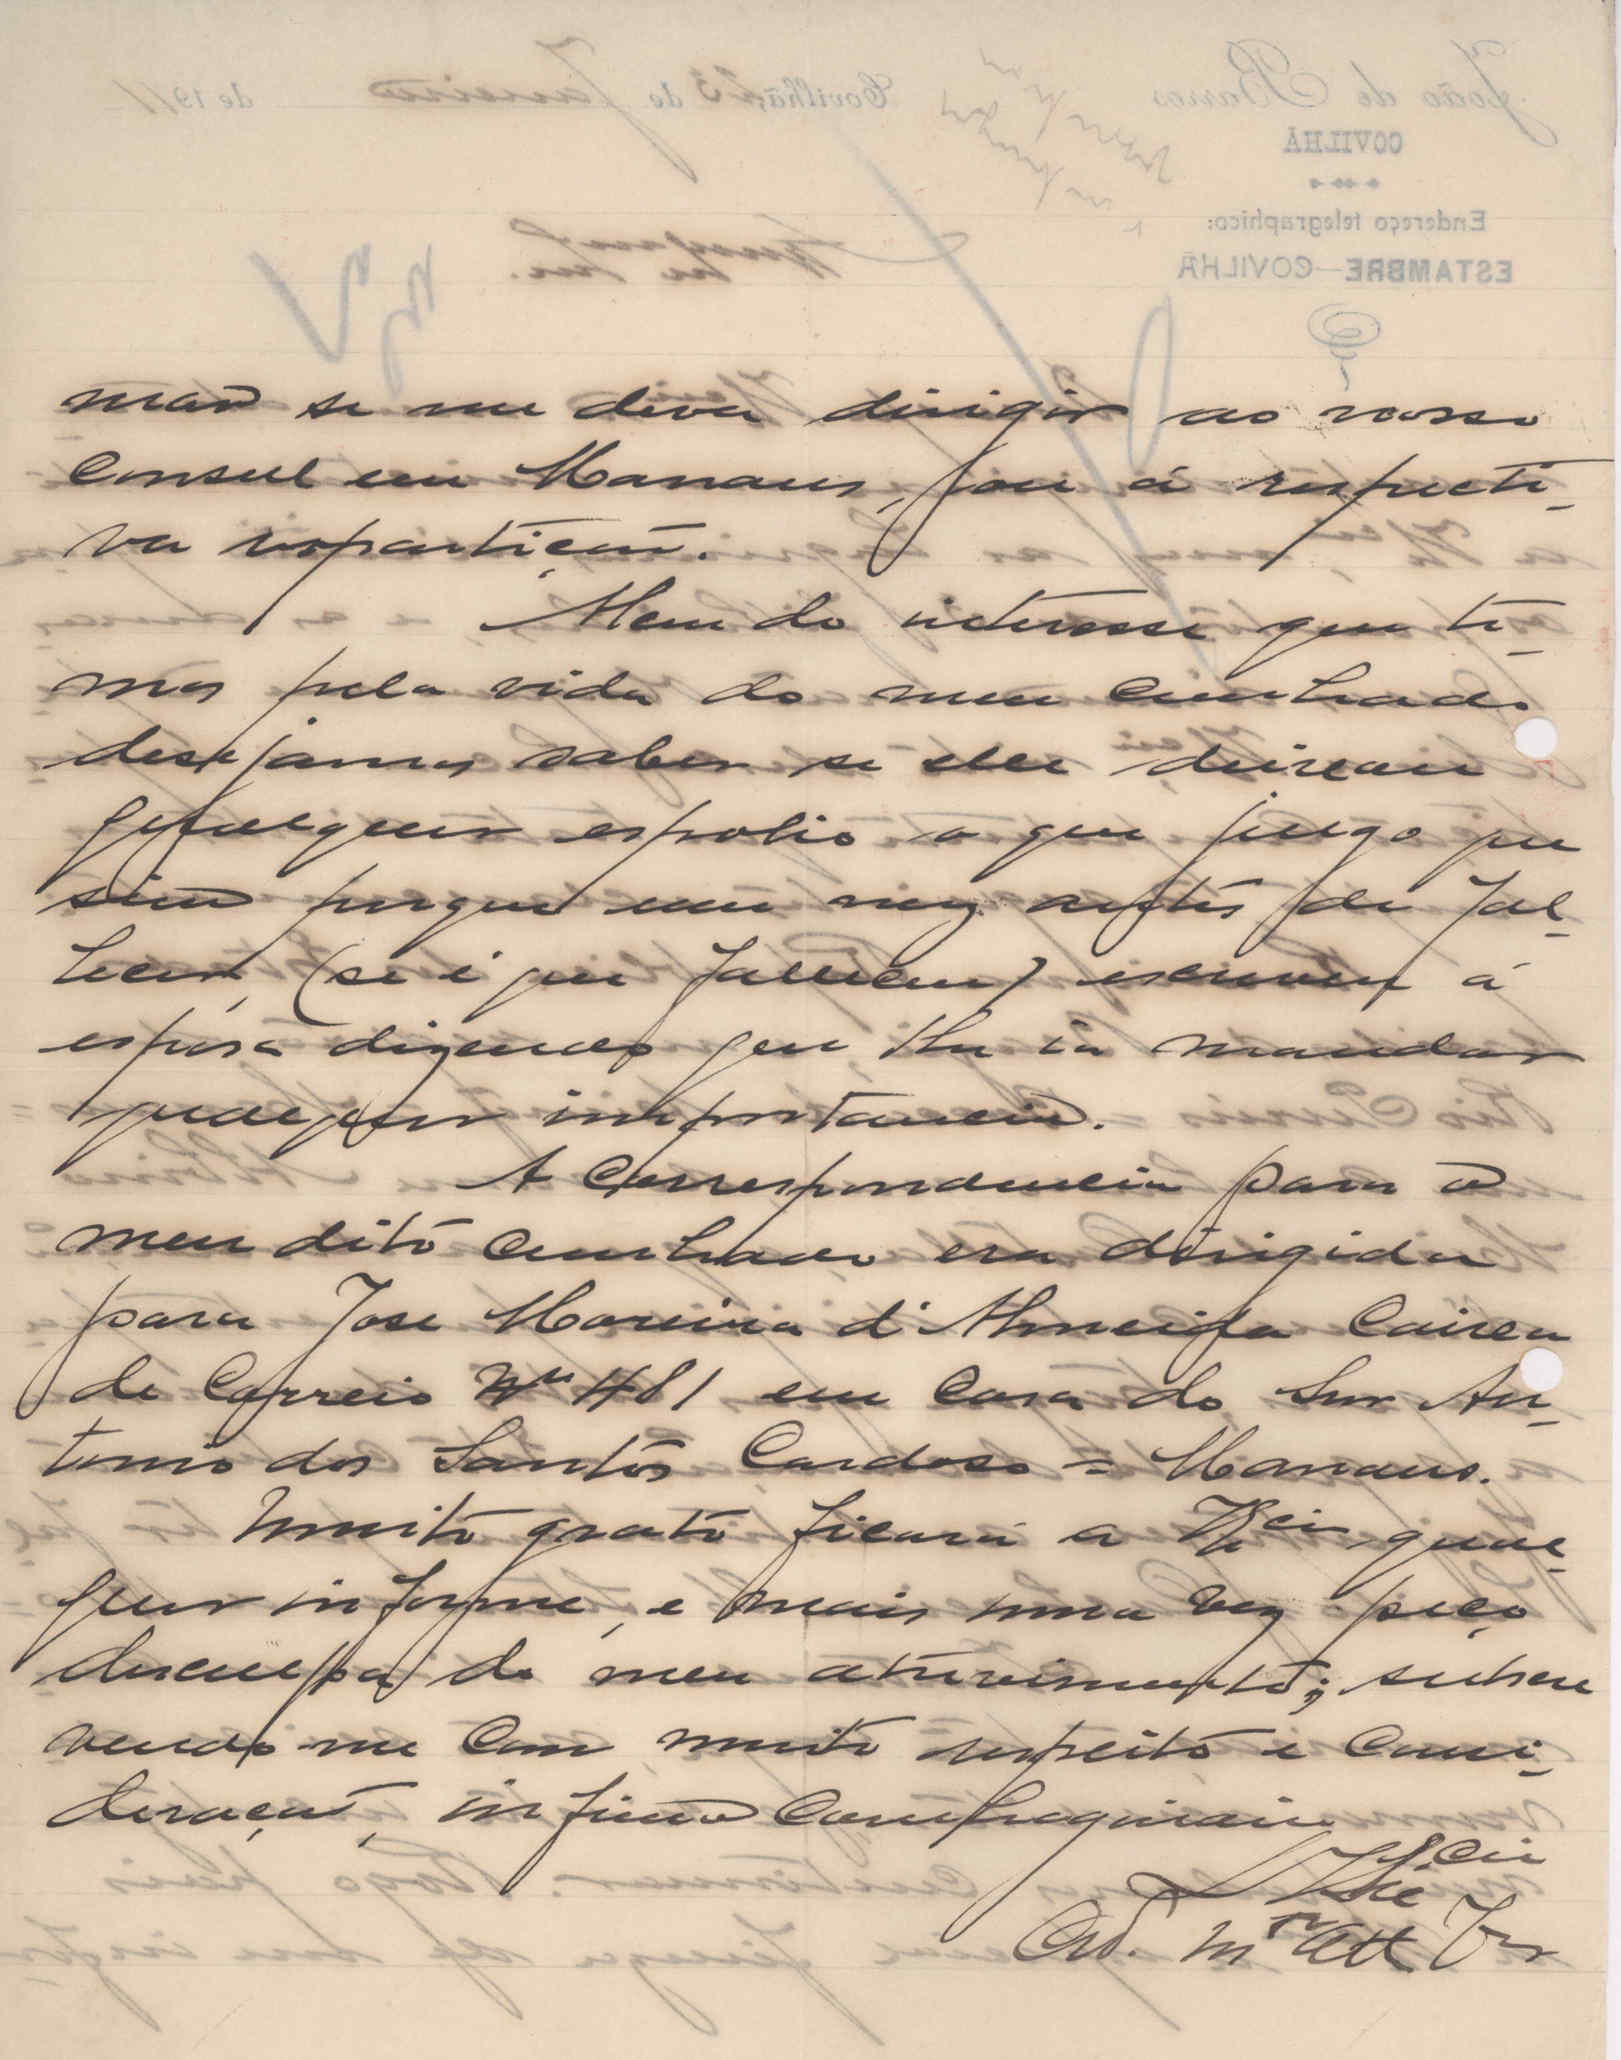 mar se me devo dirigir ao nosso
Consul em Manaus, ou á respecti-
va repartição.
Alem do interesse que te-
mos pela vida do meu Cunhado
desejamos saber se elle deixou
qualquer espolio o que julgo que
sim porque um mez antes de fal-
lecer, (se é que falleceu) escreveu á
esposa dizendo que lhe ia mandar
qualquer importancia.
A Correspondencia para o
meu dito Cunhado era dirigida
para Jose Moreira d'Almeida Caixa
de Correio Nº 481 em Casa do Snr An-
tonio dos Santos Cardoso = Manaus.
Muito grato ficarei a V. Ecia qual-
quer informe, e mais uma vez peço
desculpa do meu atrevimento; subscre
vendo me Com muito respeito e Consi-
deração,
De V. Ecia
Cro. Mto Att Vor
João de Barros
COVILHÃ
Endereço telegraphico:
ESTAMBRE—COVILHÃ
Covilhã, 23 de Janeiro de 1911